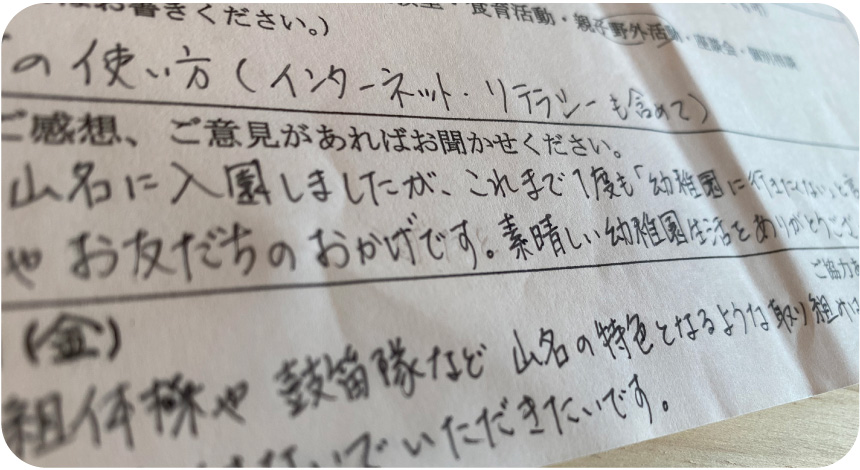 お書きください。)
・食育活動・親子野外活動・座談会・個別相談
の使い方(インターネット・リテラシーも含めて)
ご感想、ご意見があればお聞かせください。
山名に入園しましたが、これまで1度も「幼稚園に行きたくない」と
や お友だちのおかげです。素晴しい幼稚園生活をありがとうござ
ご協力
(金)
組体操や 鼓笛隊など 山名の特色となるような取り組みは
ないでいただきたいです。